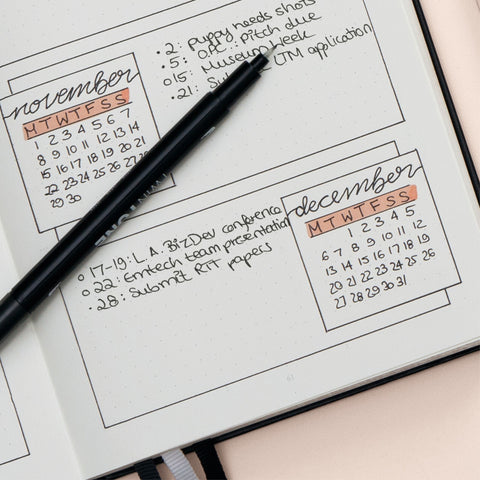 • 2: puppy needs shots
• 5: pitch due
o 15: Museum Week
• 21: application
november
M T W T F S S
1 2 3 4 5 6 7
8 9 10 11 12 13 14
15 16 17 18 19 20 21
22 23 24 25 26
29 30
december
M T W T F S S
1 2 3 4 5
6 7 8 9 10 11 12
13 14 15 16 17 18 19
20 21 22 23 24 25 26
27 28 29 30 31
o 17-19: L.A. Biz Dev conference
o 22: Emtech team presentation
• 28: Submit RIT papers